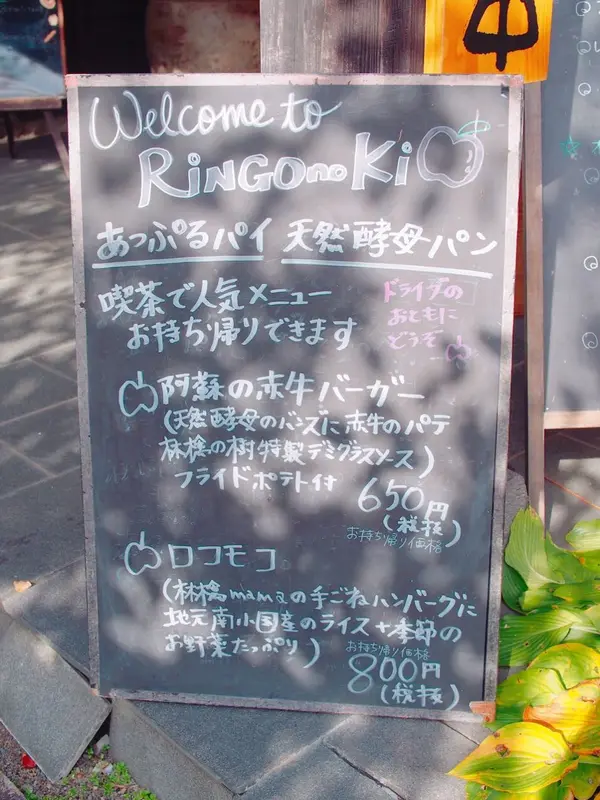 Welcome to
RiNGO no Ki
あっぷるパイ 天然酵母パン
喫茶で人気メニュー
お持ち帰りできます
ドライブの
おともに
どうぞ
阿蘇の赤牛バーガー
(天然酵母のバンズに赤牛のパテ
林檎の樹特製デミグラスソース)
フライドポテト付
650円
(税抜)
お持ち帰り価格
ロコモコ
(林檎mamaの手ごねハンバーグに
地元南小国産のライス+季節の
お野菜たっぷり)
お持ち帰り価格
800円
(税抜)